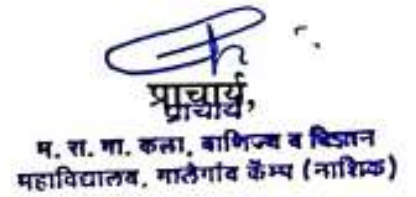 प्राचार्य,
म. रा. मा. कला, वाणिज्य व विज्ञान
महाविद्यालय, मालेगांव कॅम्प (नाशिक)